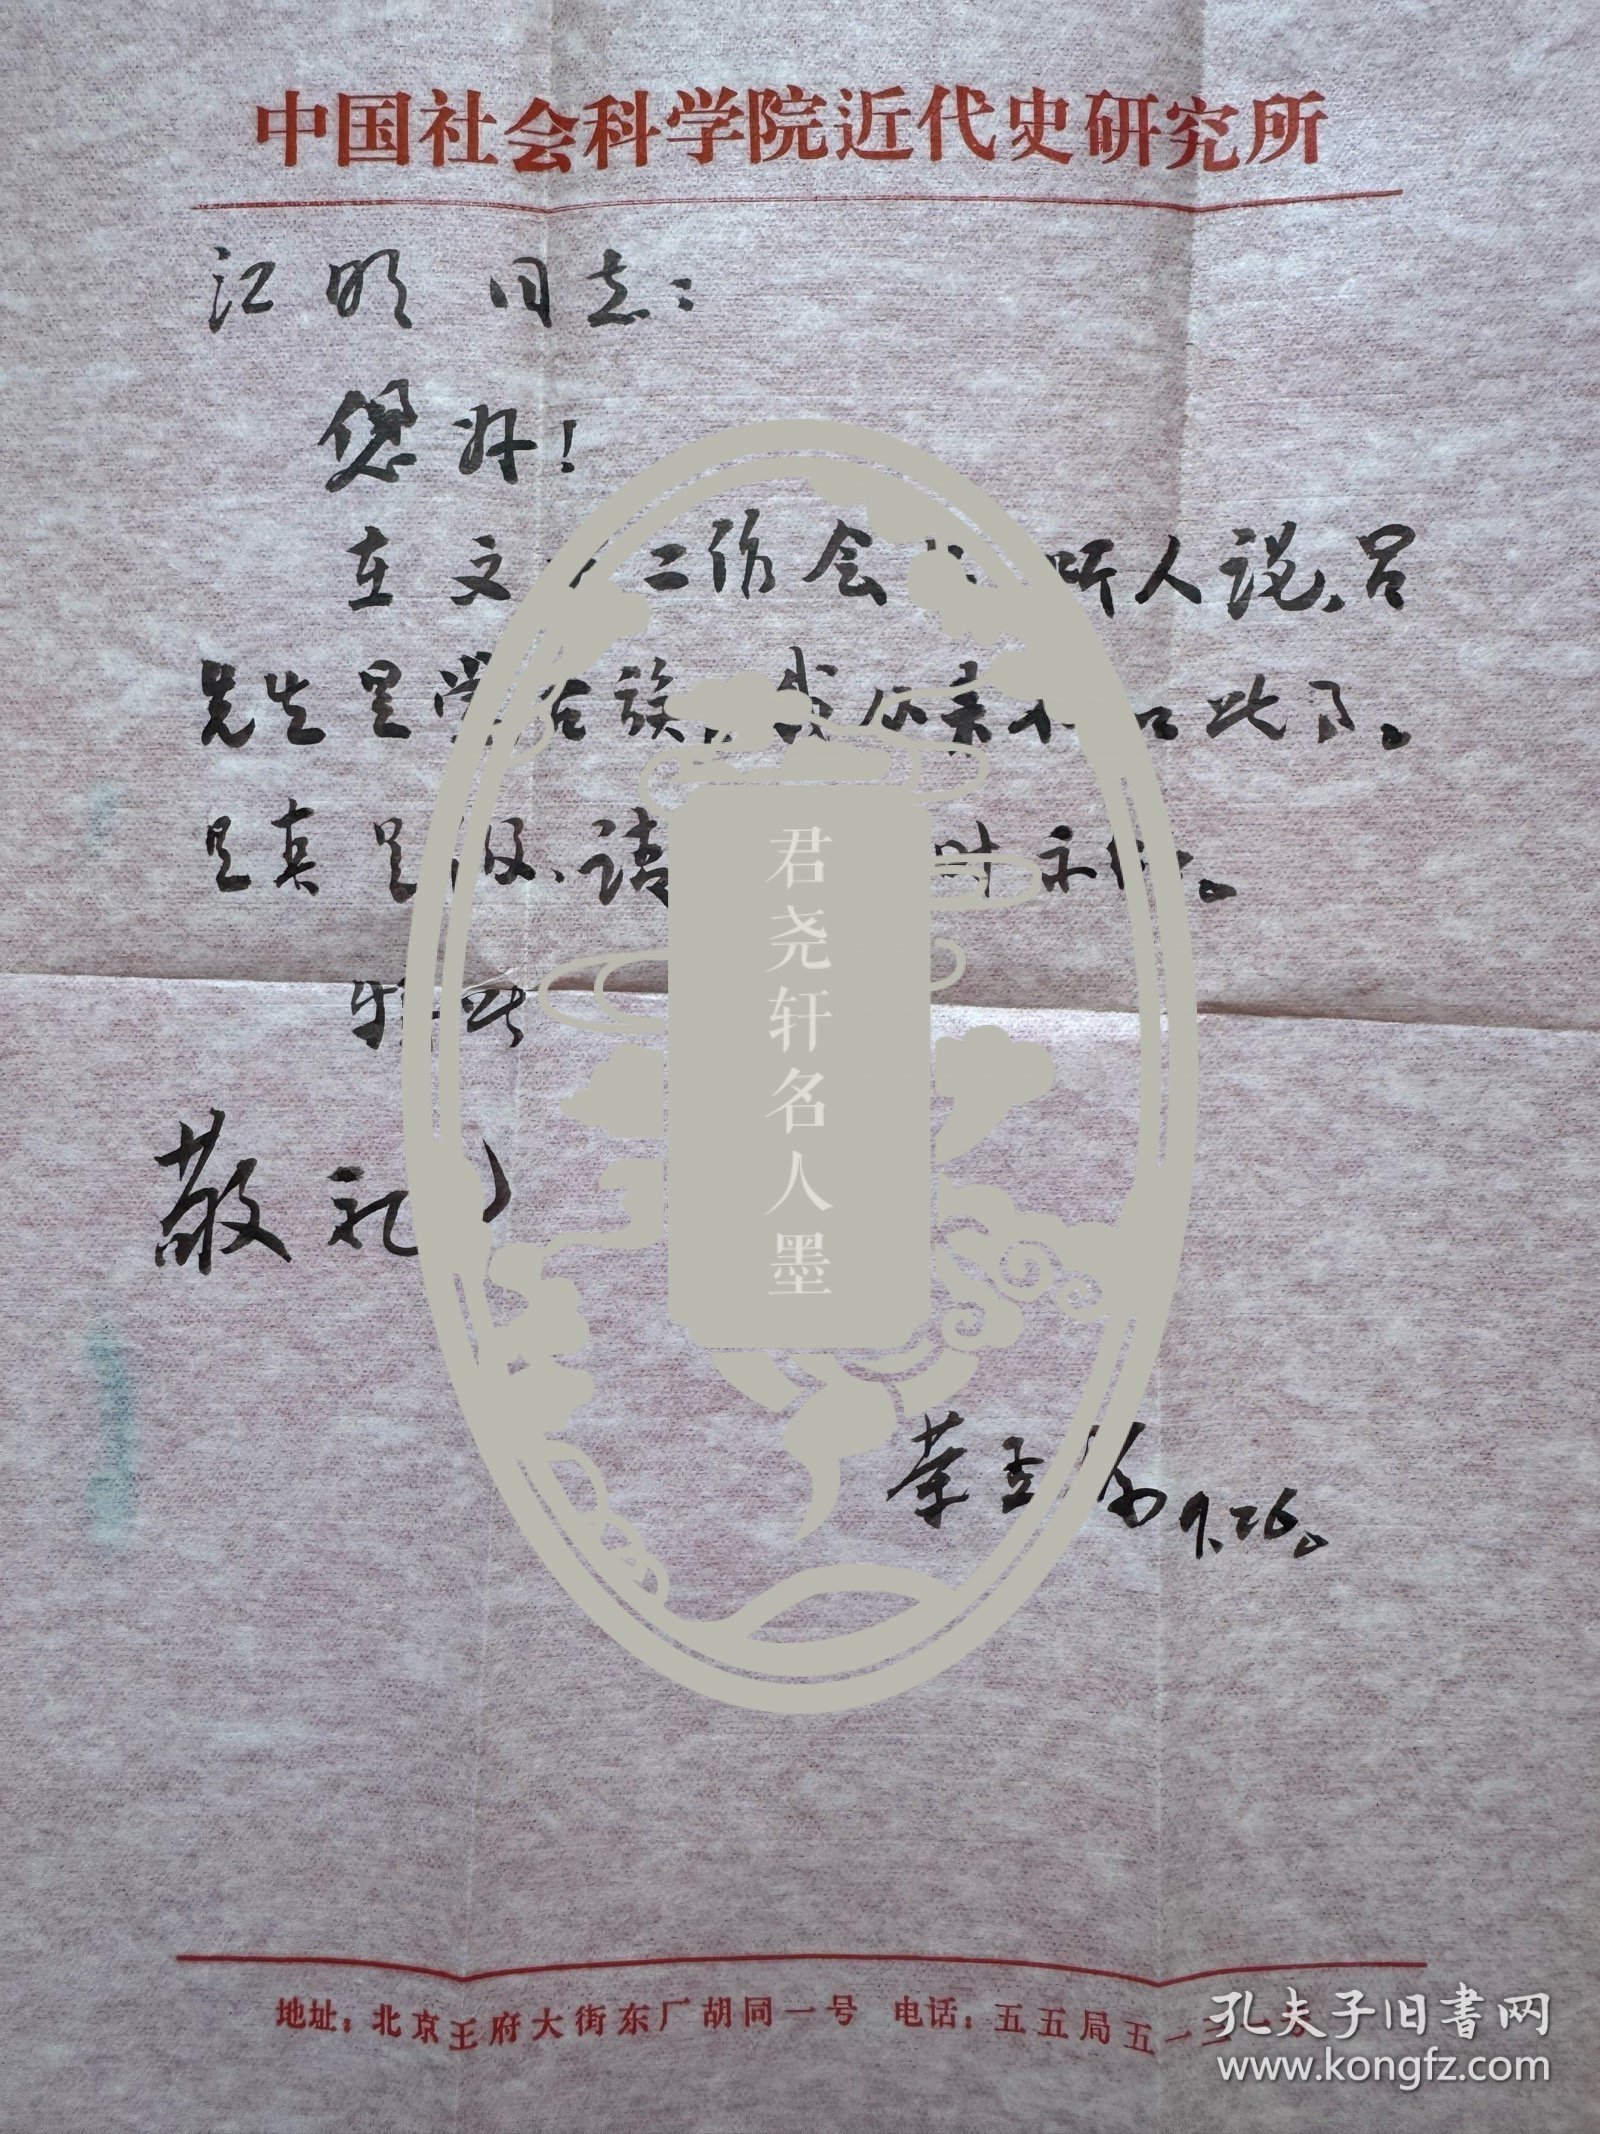 中国社会科学院近代史研究所
江明同志：
您好！
在文 工作会 听人说，吕
先生是蒙古族，我 此了。
是真是假，请 时示 。
特此
敬礼！
荣孟源 9.26。
君尧轩名人墨
地址：北京王府大街东厂胡同一号 电话：五五局五一三
孔夫子旧书网
www.kongfz.com